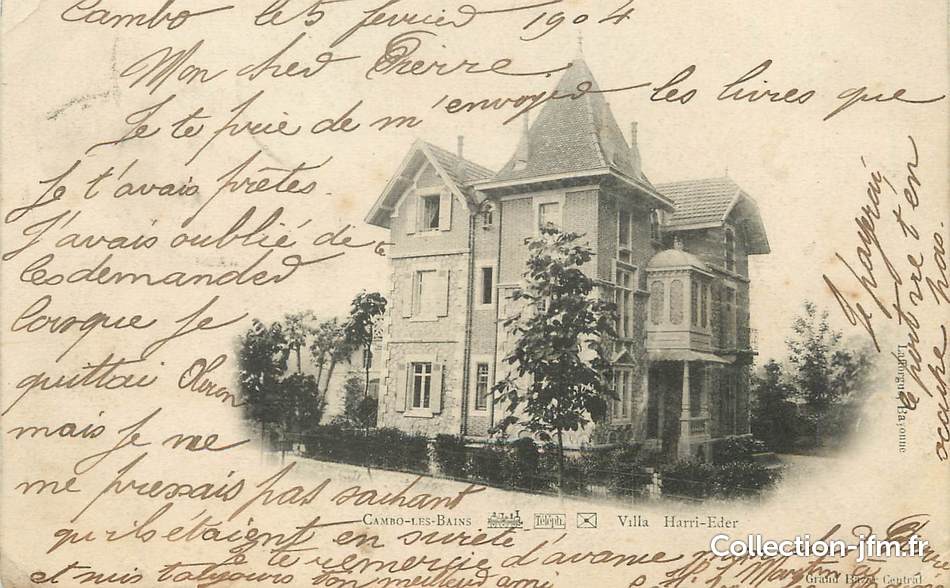 Cambo le 5 février 1904
Mon cher Pierre
Je te prie de m'envoyer les livres que
Je t'avais prêtés.
J'avais oublié de
les demander
lorsque je
quittai Oloron
mais je ne
me pressais pas sachant
qu'ils étaient en sureté
Je te remercie d'avance
et suis toujours ton meilleur ami
Je payerai
le port ne t'en
occupe pas.
Laborgue, Bayonne
CAMBO-LES-BAINS Téléph. Villa Harri-Eder
Collection-jfm.fr
Grand Bazar Central